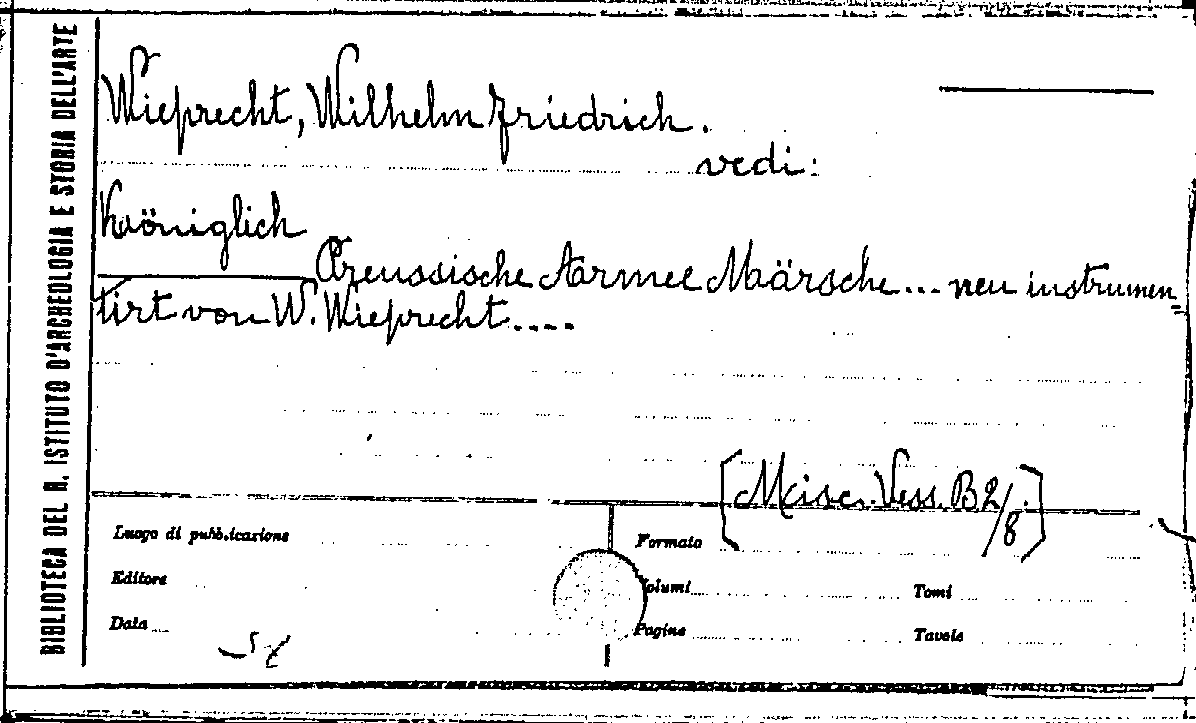 BIBLIOTECA DEL R. ISTITUTO D'ARCHEOLOGIA E STORIA DELL'ARTE
Wieprecht, Wilhelm Friedrich.
vedi:
Königlich
Preussische Armee Märsche... neu instrumen
tirt von W. Wieprecht....
[Misc. Vess. B 2/8]
Luogo di pubblicazione
Formato
Editore
Volumi
Tomi
Data
Pagine
Tavole